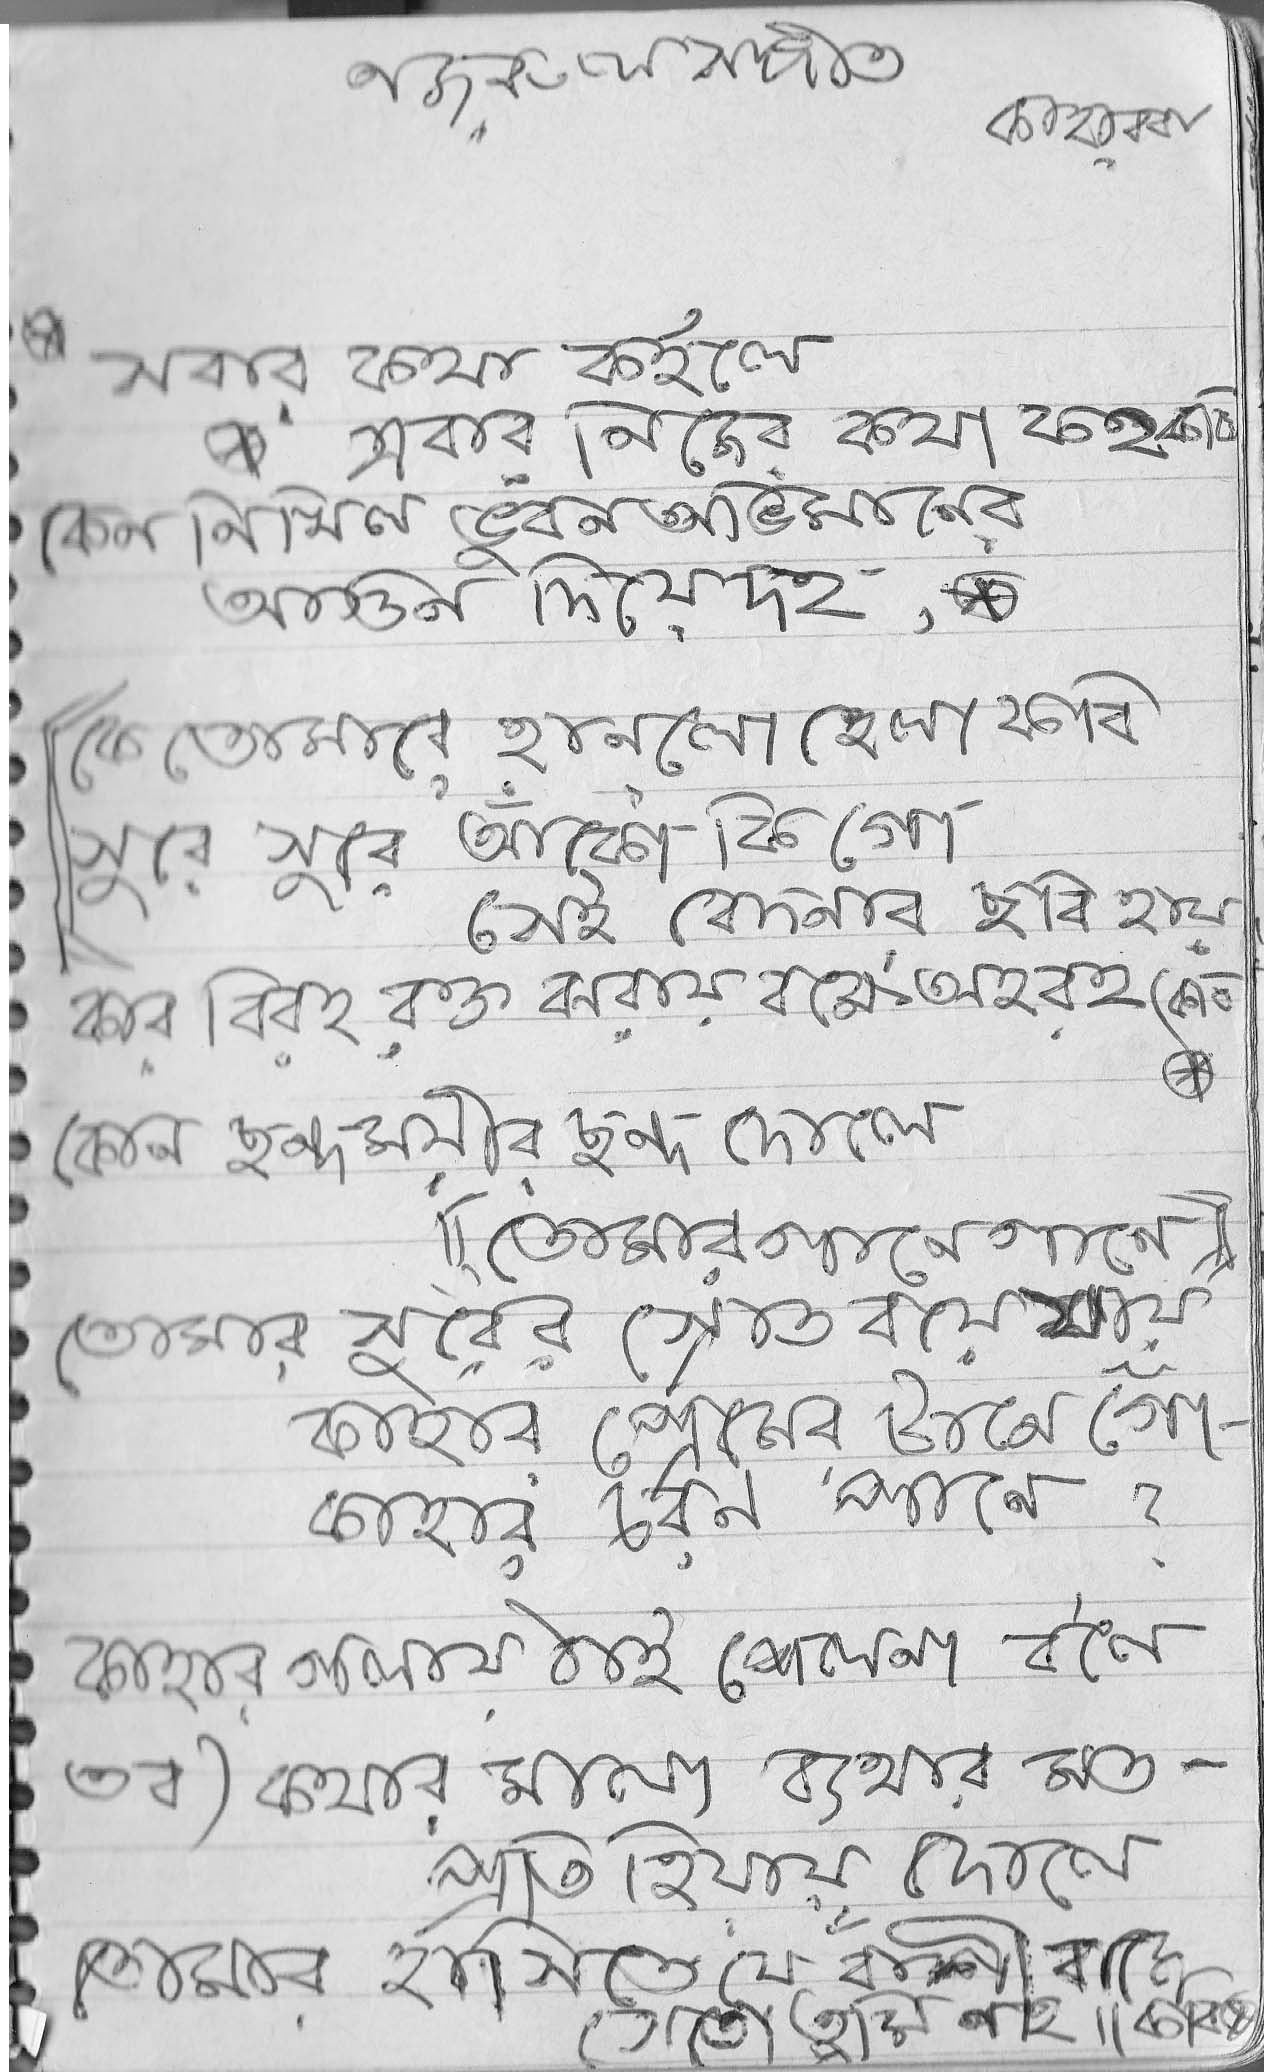 নজরুল সঙ্গীত
কাহারবা
সবার কথা কইলে
এবার নিজের কথা কহ কবি
কেন নিখিল ভুবন অভিমানের
আগুন দিয়ে দহ,
কে তোমারে হান্‌লো হেলা কবি
সুরে সুরে আঁকো কি গো
সেই বেদনার ছবি হায়
কার বিরহ রক্ত ঝরায় বক্ষে অহরহ
কোন ছন্দময়ীর ছন্দ দোলে
তোমার গানে গানে
তোমার সুরের স্রোত বয়ে যায়
কাহার প্রেমের টানে গো-
কাহার চরন পানে ?
কাহার গলায় ঠাই পেলনা বলে
তব) কথার মালা ব্যথার মত -
প্রতি হিয়ায় দোলে
তোমার হাসিতে যে বাঁশী বাজে
সেতো তুমি নহ ॥ কবি